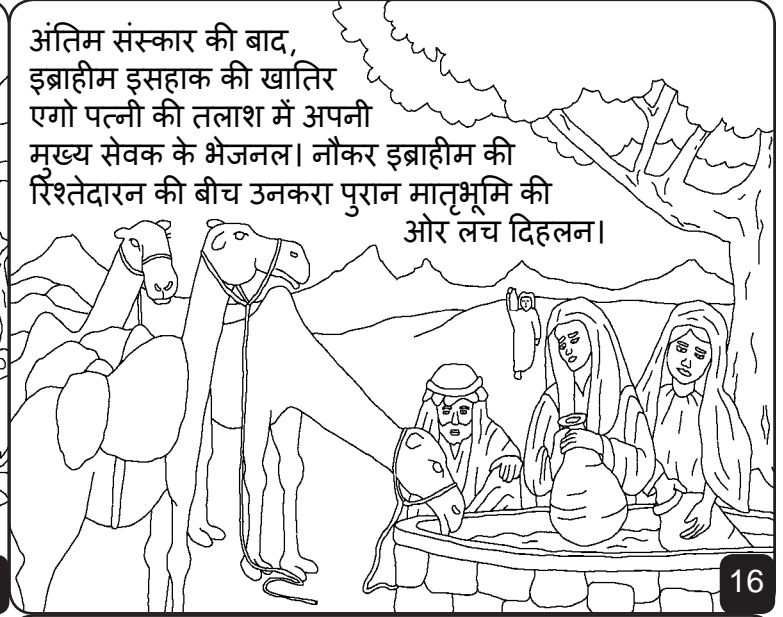 अंतिम संस्कार की बाद,
इब्राहीम इसहाक की खातिर
एगो पत्नी की तलाश में अपनी
मुख्य सेवक के भेजनल। नौकर इब्राहीम की
रिश्तेदारन की बीच उनकरा पुरान मातृभूमि की
ओर लच दिहलन।
16